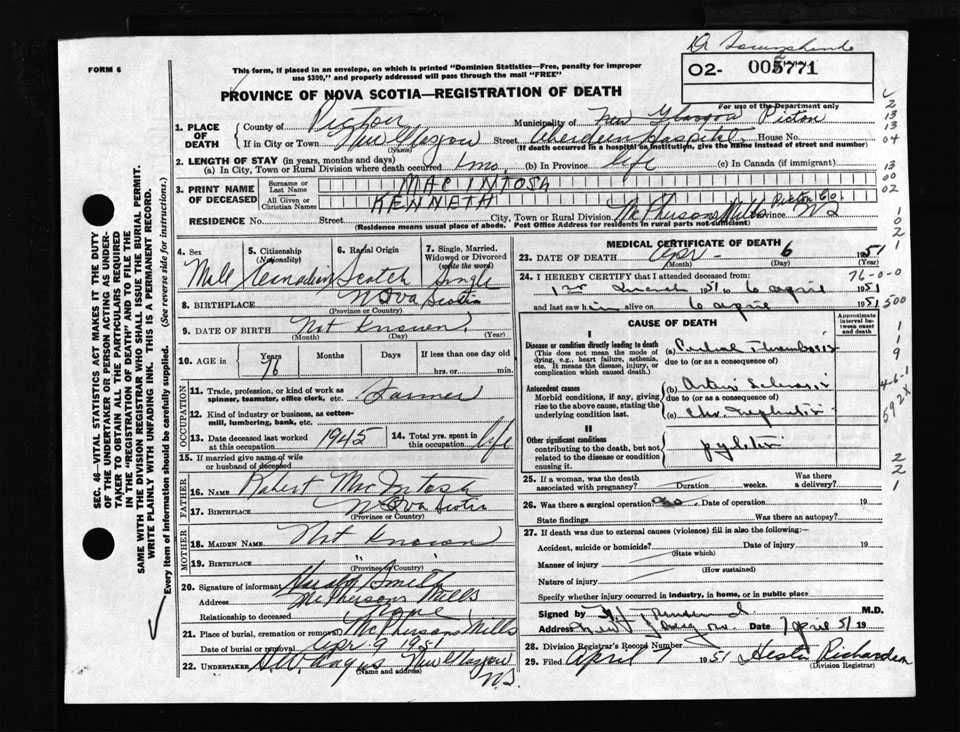 FORM 6
This form, if placed in an envelope, on which is printed "Dominion Statistics—Free, penalty for improper
use $300," and properly addressed will pass through the mail "FREE"
Dr
02- 005771
For use of the Department only
PROVINCE OF NOVA SCOTIA—REGISTRATION OF DEATH
1. PLACE OF DEATH
County of Pictou Municipality of New Glasgow Pictou
If in City or Town New Glasgow (Name) Street Aberdeen Hospital House No.
(If death occurred in a hospital or institution, give the name instead of street and number)
2. LENGTH OF STAY (in years, months and days)
(a) In City, Town or Rural Division where death occurred 1 mo. (b) In Province life (c) In Canada (if immigrant)
3. PRINT NAME OF DECEASED
Surname or Last Name MAC INTOSH
All Given or Christian Names KENNETH
RESIDENCE No. Street City, Town or Rural Division McPhersons Mills Pictou Co. Province NS
(Residence means usual place of abode. Post Office Address for residents in rural parts not sufficient)
4. Sex
Male
5. Citizenship (Nationality)
Canadian
6. Racial Origin
Scotch
7. Single, Married, Widowed or Divorced (write the word)
Single
8. BIRTHPLACE Nova Scotia
(Province or Country)
9. DATE OF BIRTH Not Known
(Month) (Day) (Year)
10. AGE in Years Months Days If less than one day old
76 hrs. or min.
OCCUPATION
11. Trade, profession, or kind of work as spinner, teamster, office clerk, etc. Farmer
12. Kind of industry or business, as cotton-mill, lumbering, bank, etc.
13. Date deceased last worked at this occupation 1945
14. Total yrs. spent in this occupation life
15. If married give name of wife or husband of deceased
FATHER
16. NAME Robert McIntosh
17. BIRTHPLACE Nova Scotia
(Province or Country)
MOTHER
18. MAIDEN NAME Not Known
19. BIRTHPLACE " "
(Province or Country)
20. Signature of informant Harold Smith
Address McPhersons Mills
Relationship to deceased None
21. Place of burial, cremation or removal McPhersons Mills
Date of burial or removal Apr. 9 1951
22. UNDERTAKER New Glasgow
(Name and address) NS
MEDICAL CERTIFICATE OF DEATH
23. DATE OF DEATH Apr - 6 1951
(Month) (Day) (Year)
24. I HEREBY CERTIFY that I attended deceased from:
1st March 1951 to 6 April 1951
and last saw him alive on 6 April 1951
CAUSE OF DEATH
Approximate interval between onset and death
I
Disease or condition directly leading to death
(This does not mean the mode of dying, e.g., heart failure, asthenia, etc. It means the disease, injury, or complication which caused death.)
(a) Cerebral Thrombosis
due to (or as a consequence of)
Antecedent causes
Morbid conditions, if any, giving rise to the above cause, stating the underlying condition last.
(b) Arterio Sclerosis
due to (or as a consequence of)
(c) Chr. Nephritis
II
Other significant conditions
contributing to the death, but not related to the disease or condition causing it.
25. If a woman, was the death associated with pregnancy? Duration weeks. Was there a delivery?
26. Was there a surgical operation no Date of operation 19
State findings Was there an autopsy?
27. If death was due to external causes (violence) fill in also the following:—
Accident, suicide or homicide? Date of injury 19
(State which)
Manner of injury
(How sustained)
Nature of injury
Specify whether injury occurred in industry, in home, or in public place
Signed by M.D.
Address New Glasgow Date 7 April 51 19
28. Division Registrar's Record Number
29. Filed April 7 1951 Hester Richardson
(Division Registrar)
2
13
13
04
13
00
02
1
0
2
1
76-0-0
500
1
1
9
4-6-1
592X
2
2
1
SEC. 46—VITAL STATISTICS ACT MAKES IT THE DUTY
OF THE UNDERTAKER OR PERSON ACTING AS UNDER-
TAKER TO OBTAIN ALL THE PARTICULARS REQUIRED
IN THE "REGISTRATION OF DEATH" AND TO FILE THE
SAME WITH THE DIVISION REGISTRAR WHO SHALL ISSUE THE BURIAL PERMIT.
WRITE PLAINLY WITH UNFADING INK. THIS IS A PERMANENT RECORD.
Every item of information should be carefully supplied. (See reverse side for instructions.)